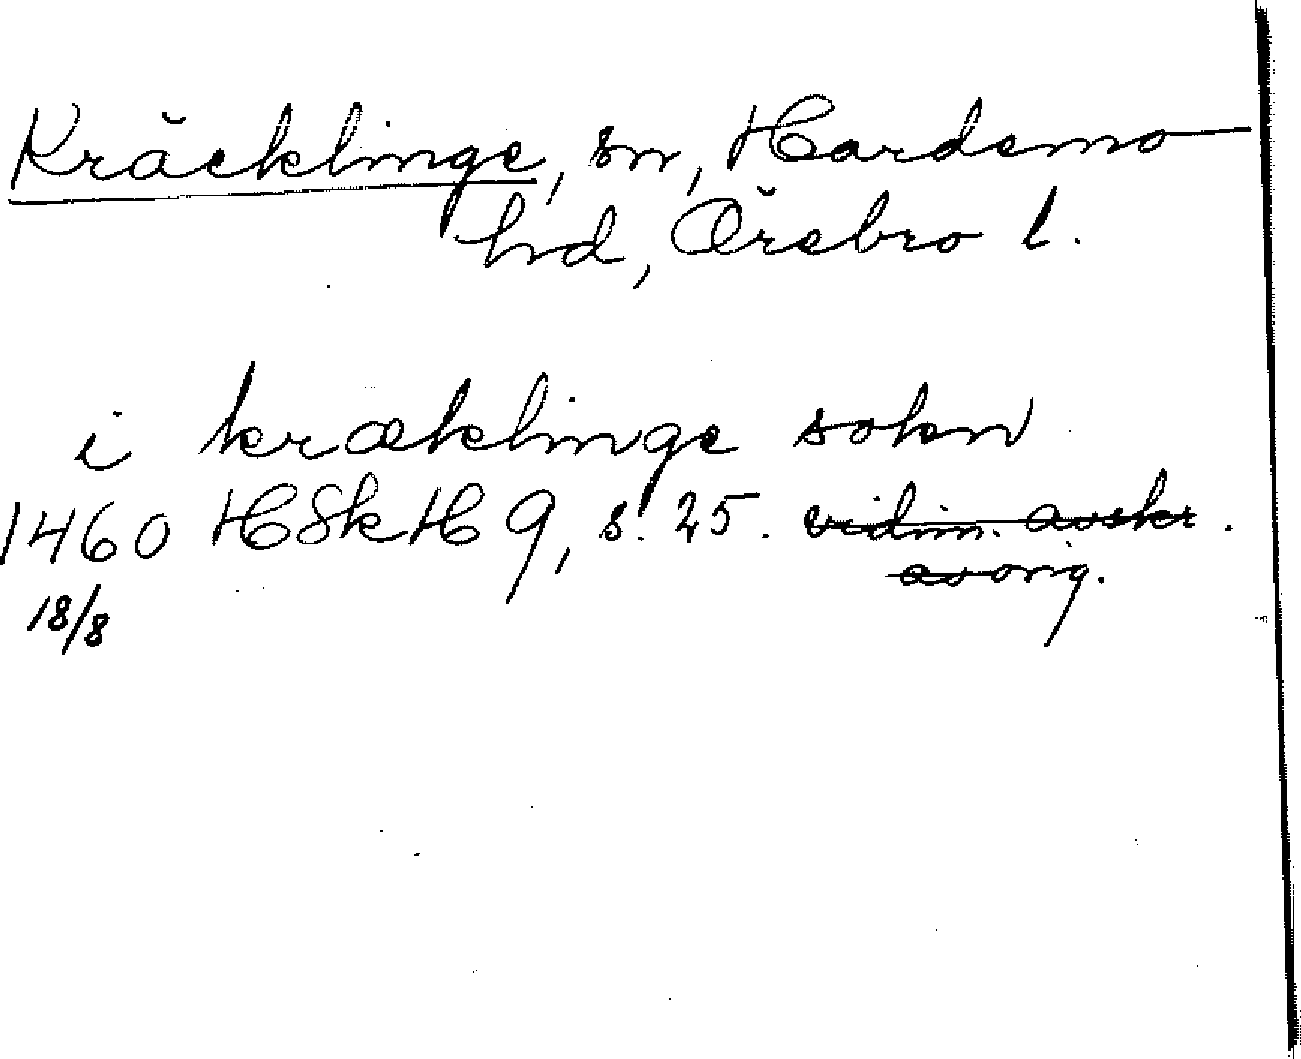 Kräcklinge, sn, Hardemo
hd, Örebro l.
i kræklinge sokn
1460 HSkH 9, s. 25. vidim. avskr.
av orig.
18/8